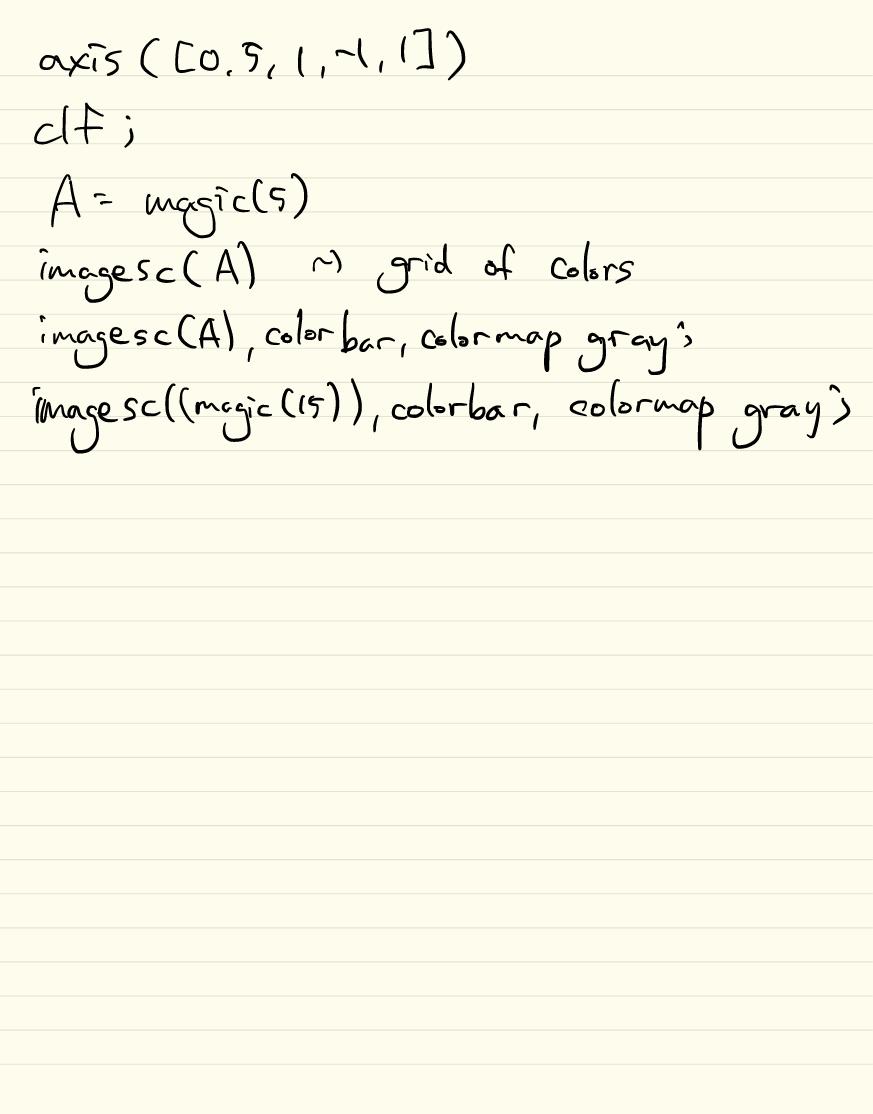 axis([0.5, 1, -1, 1])
clf;
A = magic(5)
imagesc(A) ~) grid of colors
imagesc(A), colorbar, colormap gray;
imagesc((magic(15)), colorbar, colormap gray;